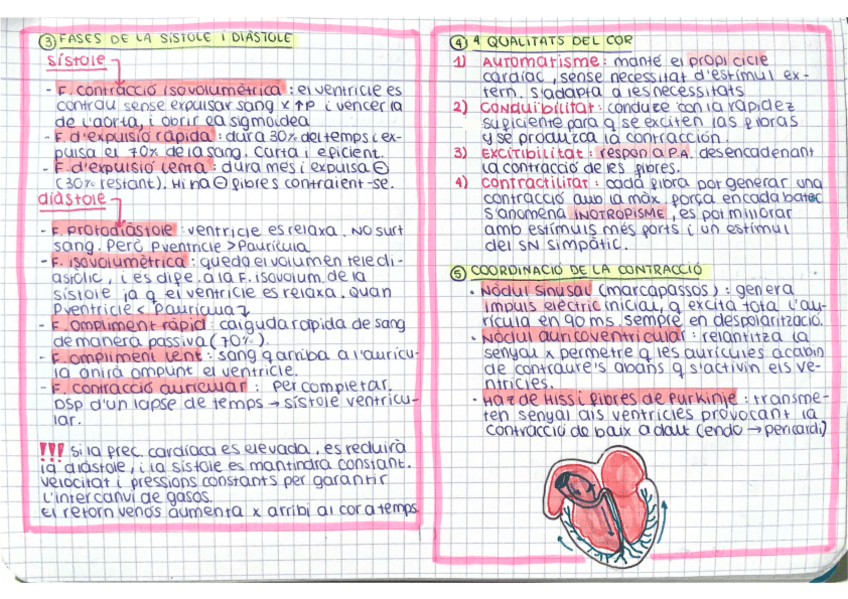 ③ FASES DE LA SÍSTOLE I DIÀSTOLE
sístole
- F. contracció isovolumètrica : el ventricle es
contrau sense expulsar sang x ↑P i vencer la
de l'aorta, i obrir la sigmoidea
- F. d'expulsió ràpida : dura 30% del temps i ex-
pulsa el 70% de la sang. Curta i eficient.
- F. d'expulsió lenta : dura més i expulsa ⊖
(30% restant). Hi ha ⊖ fibres contraient-se.
diàstole
- F. protodiàstole : ventricle es relaxa. NO surt
sang. Però Pventricle > Paurícula
- F. isovolumètrica : queda el volumen teledi-
astòlic, i es dife. a la F. isovolum. de la
sístole ja q el ventricle es relaxa. Quan
Pventricle < Paurícula
- F. ompliment ràpid : caiguda ràpida de sang
de manera passiva (70%).
- F. ompliment lent : sang q arriba a l'aurícu-
la anirà omplint el ventricle.
- F. contracció auricular : per completar.
DSP d'un lapse de temps → sístole ventricu-
lar.
!!! si la frec. cardíaca es elevada, es reduirà
la diàstole, i la sístole es mantindrà constant.
velocitat i pressions constants per garantir
l'intercanvi de gasos.
El retorn venós augmenta x arribi al cor a temps.
④ 4 QUALITATS DEL COR
1) Automatisme : manté el propi cicle
cardíac, sense necessitat d'estímul ex-
tern. S'adapta a les necessitats
2) Conduibilitat : conduze con la rapidez
suficiente para q se exciten las fibras
y se produzca la contracción.
3) Excitibilitat : respon a P.A. desencadenant
la contracció de les fibres.
4) Contractilitat : cada fibra pot generar una
contracció amb la màx. força en cada batec
S'anomena INOTROPISME, es pot millorar
amb estímuls més forts i un estímul
del SN simpàtic.
⑤ COORDINACIÓ DE LA CONTRACCIÓ
• Nòdul sinusal (marcapassos) : genera
impuls elèctric inicial, q excita tota l'au-
rícula en 90 ms. sempre en despolarització.
• Nòdul auricoventricular : relantitza la
senyal x permetre q les aurícules acabin
de contraure's abans q s'activin els ve-
ntricles.
• Haz de Hiss i fibres de Purkinje : transme-
ten senyal als ventricles provocant la
contracció de baix a dalt (endo → pericardi)